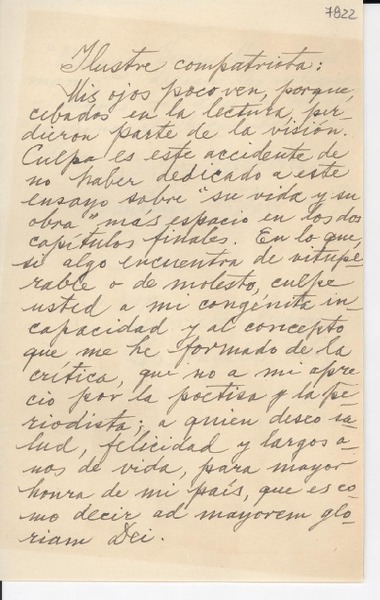 7822
Ilustre compatriota:
Mis ojos poco ven, porque,
cebados en la lectura, per-
dieron parte de la visión.
Culpa es este accidente de
no haber dedicado a este
ensayo sobre "su vida y su
obra" más espacio en los dos
capítulos finales. En lo que,
si algo encuentra de vitupe-
rable o de molesto, culpe
usted a mi congénita in-
capacidad y al concepto
que me he formado de la
crítica, que no a mi apre-
cio por la poetisa y la pe-
riodista; a quien deseo sa-
lud, felicidad y largos a-
ños de vida, para mayor
honra de mi país, que es co-
mo decir ad mayorem glo-
riam Dei.